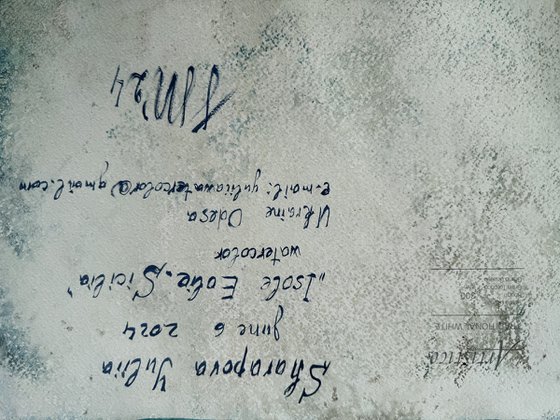 Sharapova Yuliia
June 6 2024
„Isole Eolie. Sicilia"
watercolor
Ukraine Odesa
e-mail: yuliiawatercolor@gmail.com
Artistico
TRADITIONAL WHITE
300